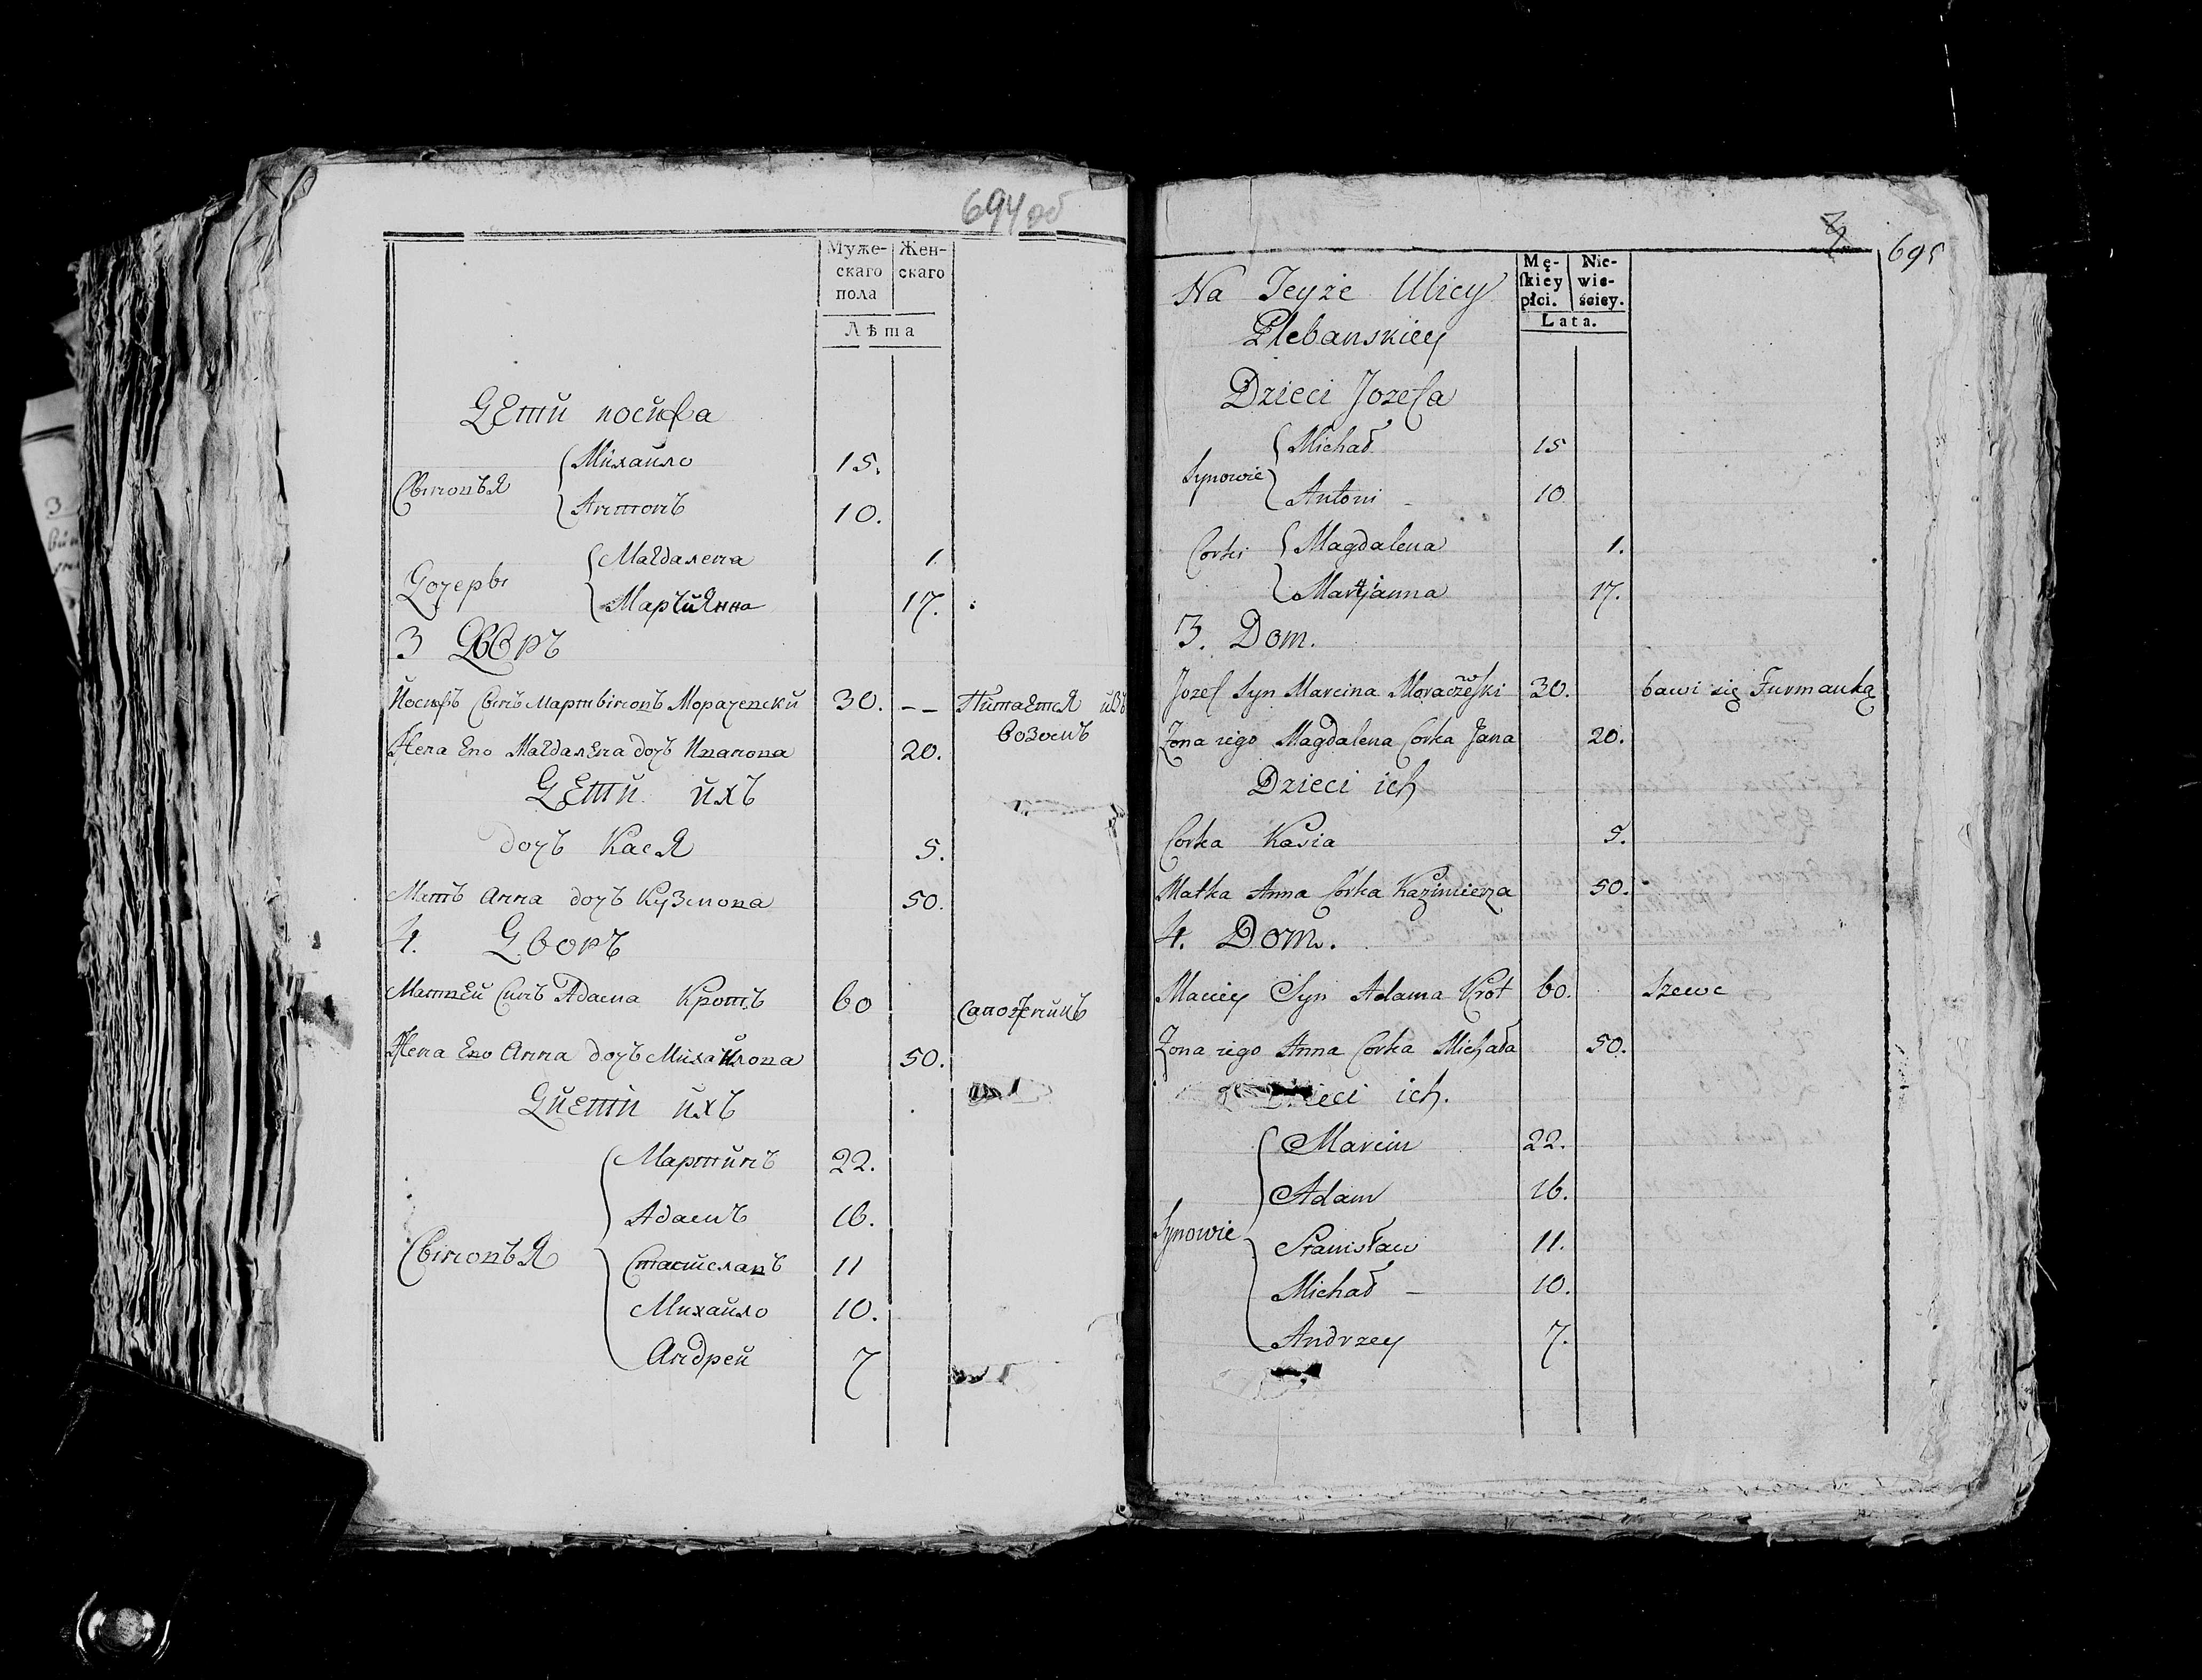 694 об
Муже-
скаго
пола
Жен-
скаго
Лѣта
Дети иосифа
Михайло 15.
Сыновья
Антонъ 10.
Магдалена 1
Дочеры
Марцианна 17.
3 Дворъ
Йосифъ Сынъ Мартыновъ Морачевски 30. -- Питается изв
возомъ
Жена Его Магдалена дочъ Иванова 20.
Дети ихъ
дочъ Кася 5.
Мать Анна дочъ Кузмова 50.
4. Дворъ
Матвей Синъ Адама Кротъ 60 Сапожникъ
Жена Его Анна дочъ Михайлова 50.
Диети ихъ
Мартинъ 22.
Адамъ 16.
Сыновья
Станиславъ 11
Михайло 10.
Андрей 7
695
Na Teyże Ulicy
Plebanskiey
Mę-
skiey
płci.
Nie-
wie-
ściey.
Lata.
Dzieci Jozefa
Michał 15
Synowie
Antoni - 10
Corki Magdalena 1.
Maryianna 17.
3. Dom.
Jozef Syn Marcina Moraczewski 30. bawi się Furmanką
Zona iego Magdalena Corka Jana 20.
Dzieci ich
Corka Kasia 5.
Matka Anna Corka Kazimierza 50.
4. Dom.
Maciey Syn Adama Krot 60. Szewc
Zona iego Anna Corka Michała 50.
Dzieci ich.
Marcin 22.
Adam 16.
Synowie
Stanisław 11.
Michał - 10.
Andrzey 7.